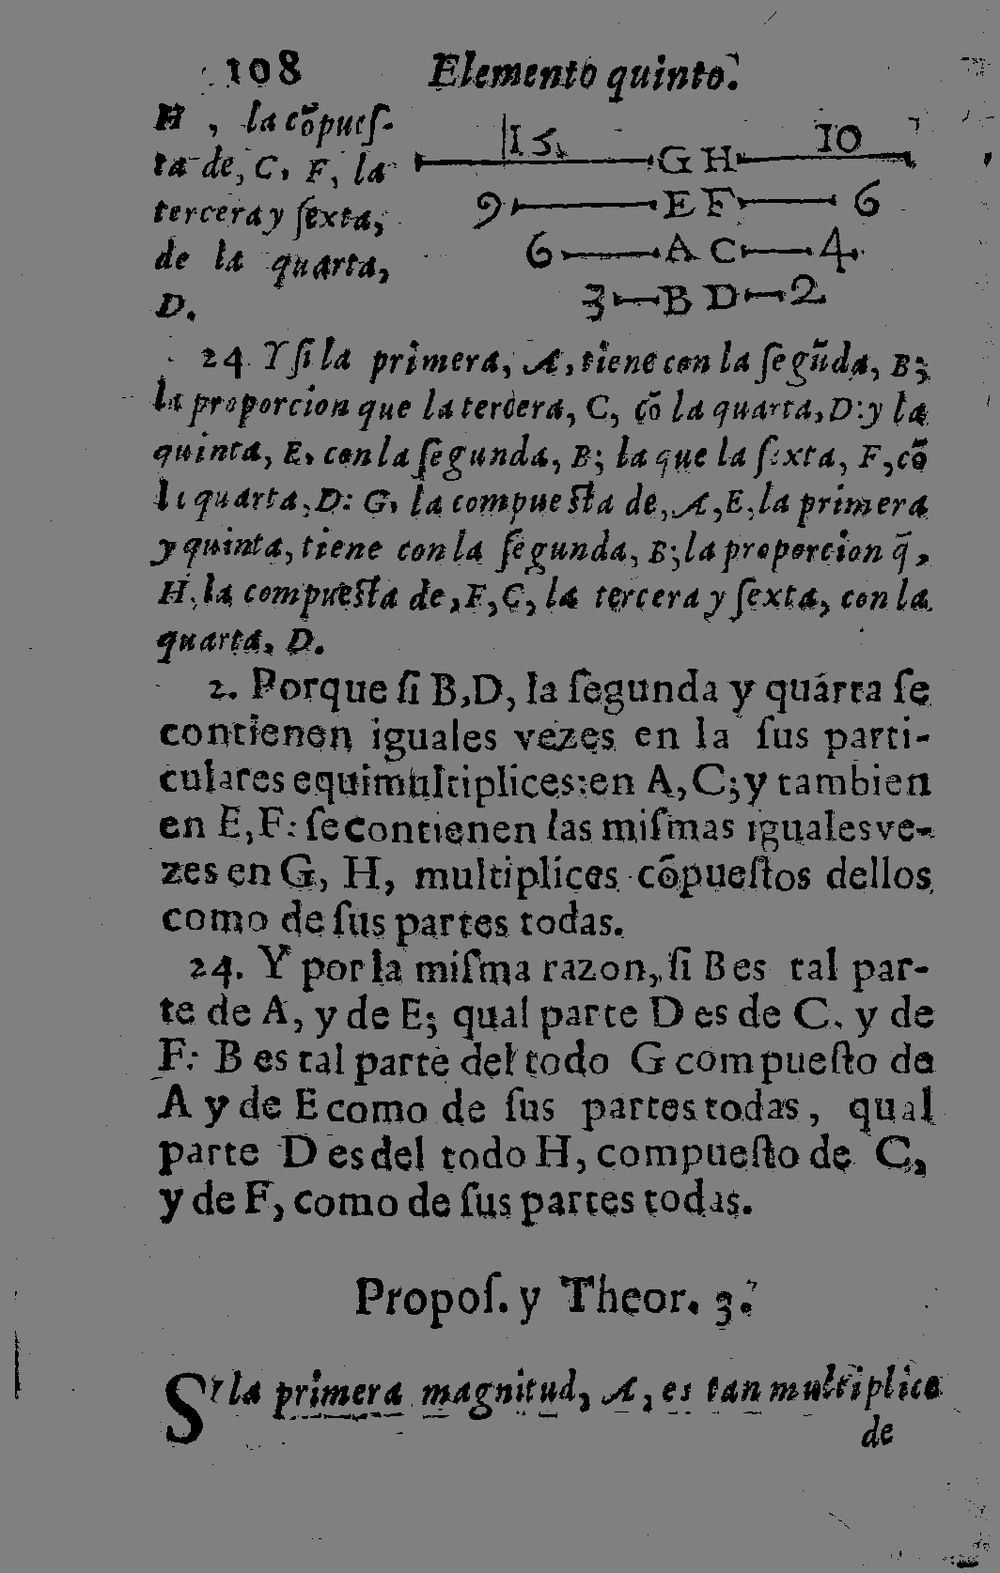 108 Elemento quinto.
H, la cõpueſ-
ta de, C, F, la
tercera y ſexta,
de la quarta,
D.
15 G H 10
9 E F 6
6 A C 4
3 B D 2
24 Y ſi la primera, A, tiene con la ſegũda, B;
la proporcion que la tercera, C, cõ la quarta, D: y la
quinta, E, con la ſegunda, B; la que la ſexta, F, cõ
la quarta, D: G, la compueſta de, A, E, la primera
y quinta, tiene con la ſegunda, B; la proporcion q̃,
H, la compueſta de, F, C, la tercera y ſexta, con la
quarta, D.
2. Porque ſi B, D, la ſegunda y quarta ſe
contienen iguales vezes en la ſus parti-
culares equimultiplices: en A, C; y tambien
en E, F: ſe contienen las miſmas iguales ve-
zes en G, H, multiplices cõpueſtos dellos
como de ſus partes todas.
24. Y por la miſma razon, ſi B es tal par-
te de A, y de E; qual parte D es de C, y de
F: B es tal parte del todo G compueſto de
A y de E como de ſus partes todas, qual
parte D es del todo H, compueſto de C,
y de F, como de ſus partes todas.
Propoſ. y Theor. 3.
SI la primera magnitud, A, es tan multiplice
de